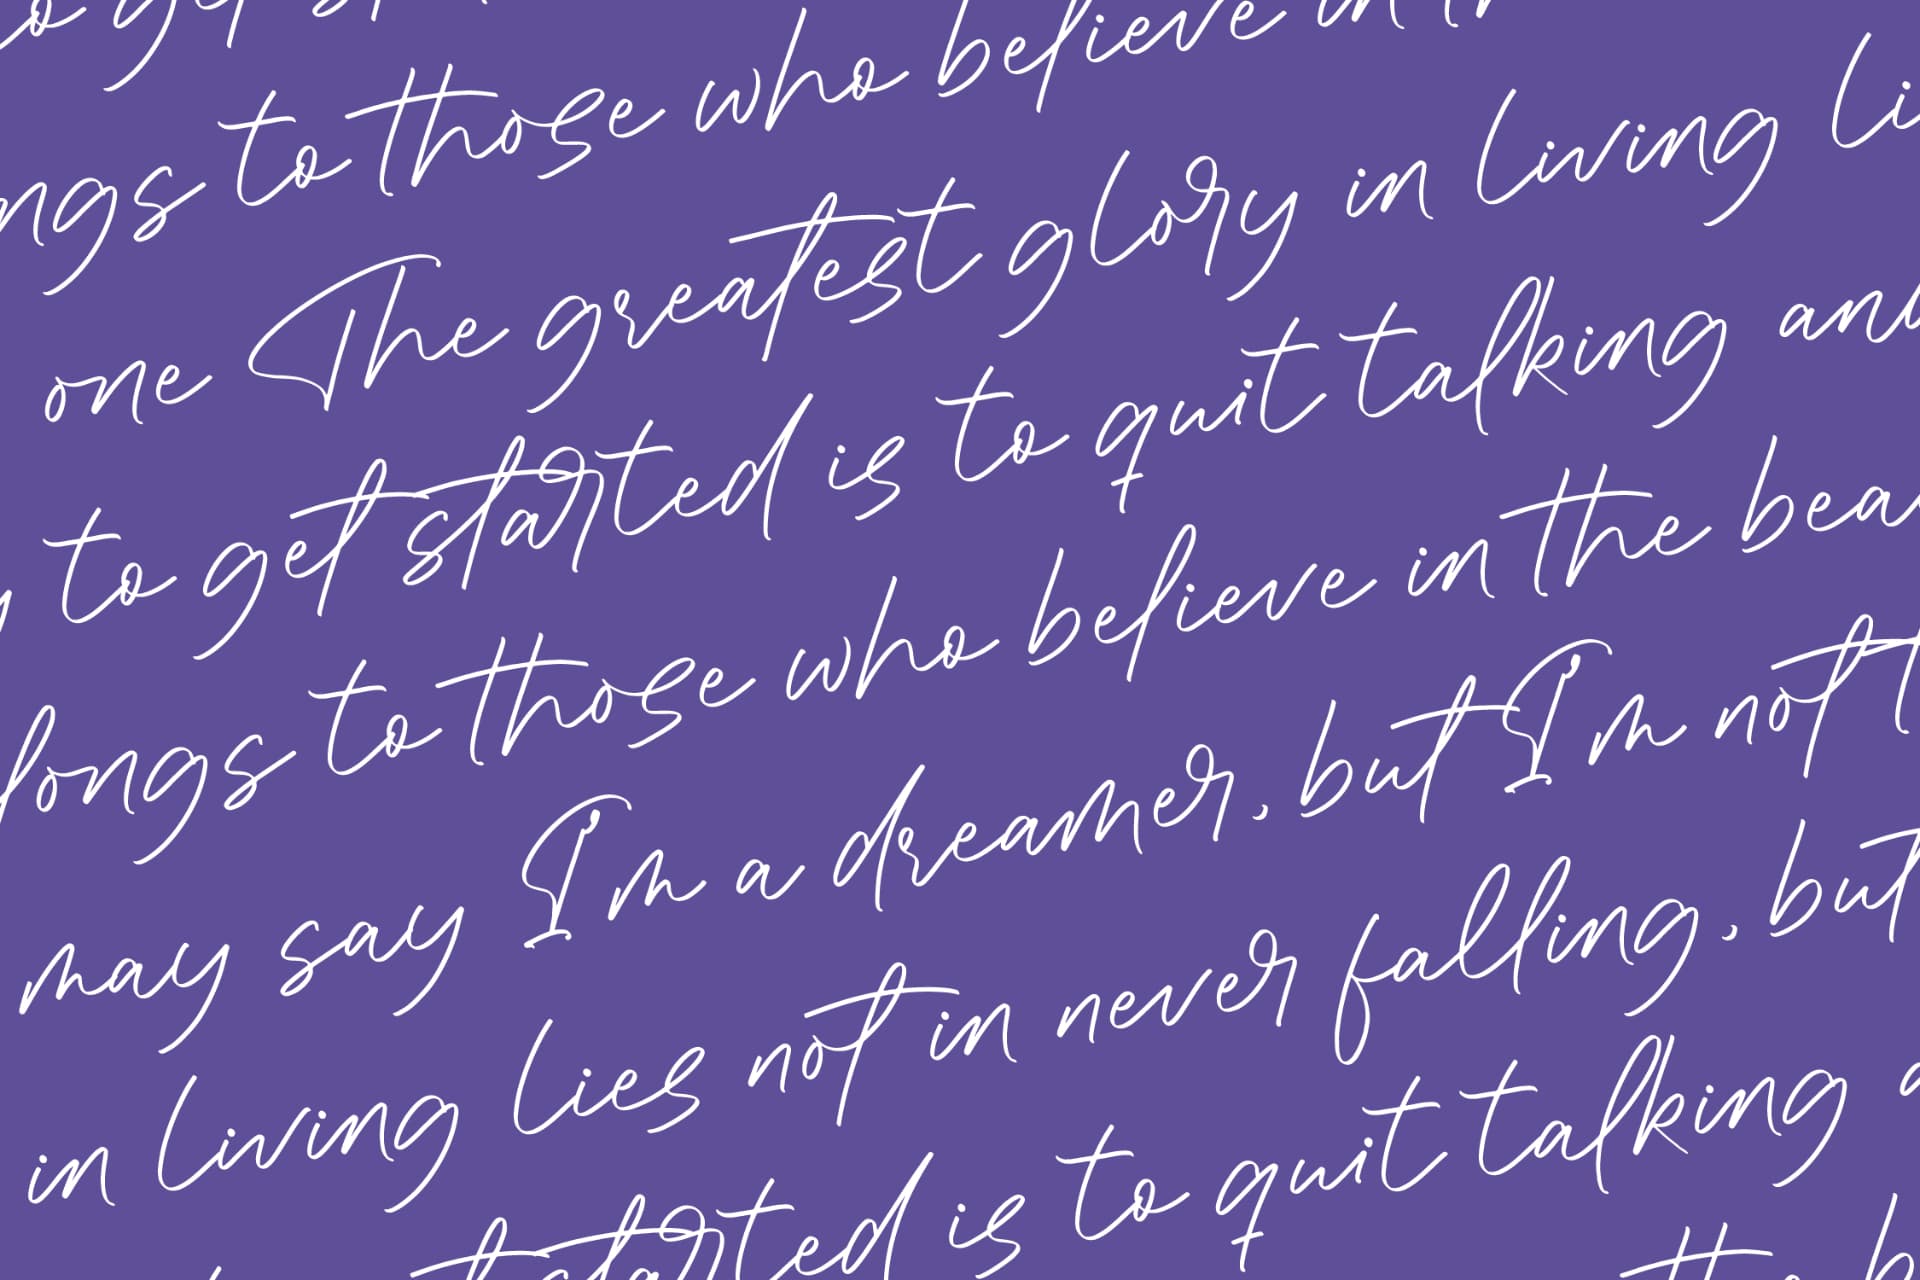 to get st
ngs to those who believe in th
one The greatest glory in living li
to get started is to quit talking and
longs to those who believe in the bea
may say I'm a dreamer, but I'm not t
in living lies not in never falling, but
started is to quit talking a
the b